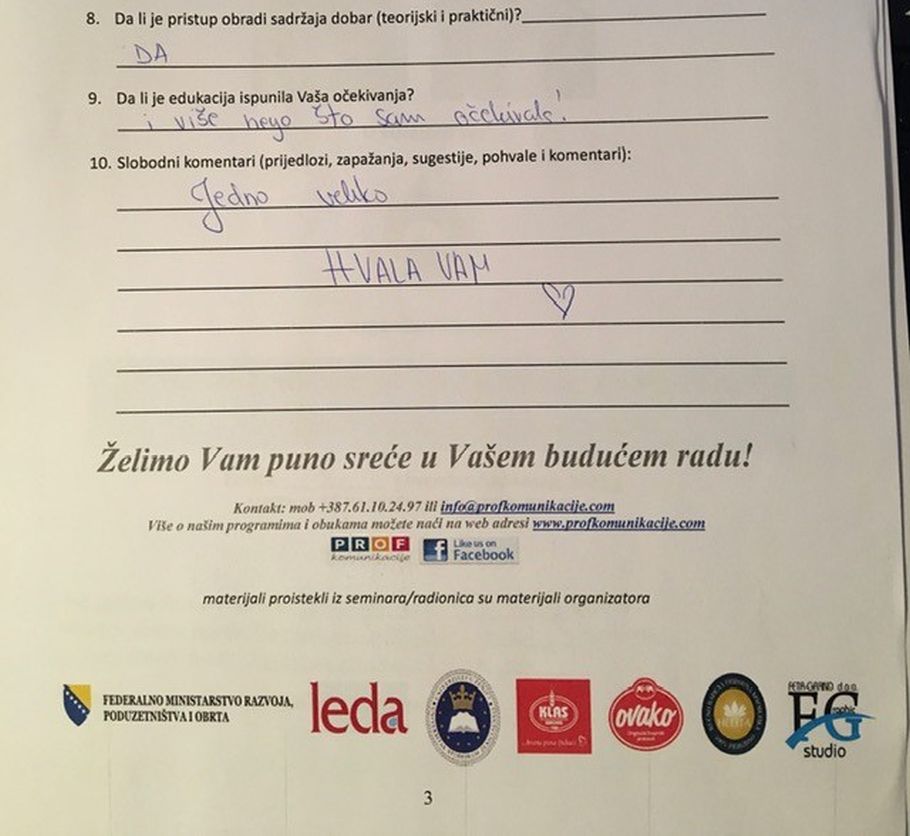 8. Da li je pristup obradi sadržaja dobar (teorijski i praktični)?
DA
9. Da li je edukacija ispunila Vaša očekivanja?
i više nego što sam očekivala!
10. Slobodni komentari (prijedlozi, zapažanja, sugestije, pohvale i komentari):
Jedno veliko
HVALA VAM
Želimo Vam puno sreće u Vašem budućem radu!
Kontakt: mob +387.61.10.24.97 ili info@profkomunikacije.com
Više o našim programima i obukama možete naći na web adresi www.profkomunikacije.com
PROF
komunikacije
Like us on
Facebook
materijali proistekli iz seminara/radionica su materijali organizatora
FEDERALNO MINISTARSTVO RAZVOJA,
PODUZETNIŠTVA I OBRTA
leda
KLAS
ovako
FG
studio
3